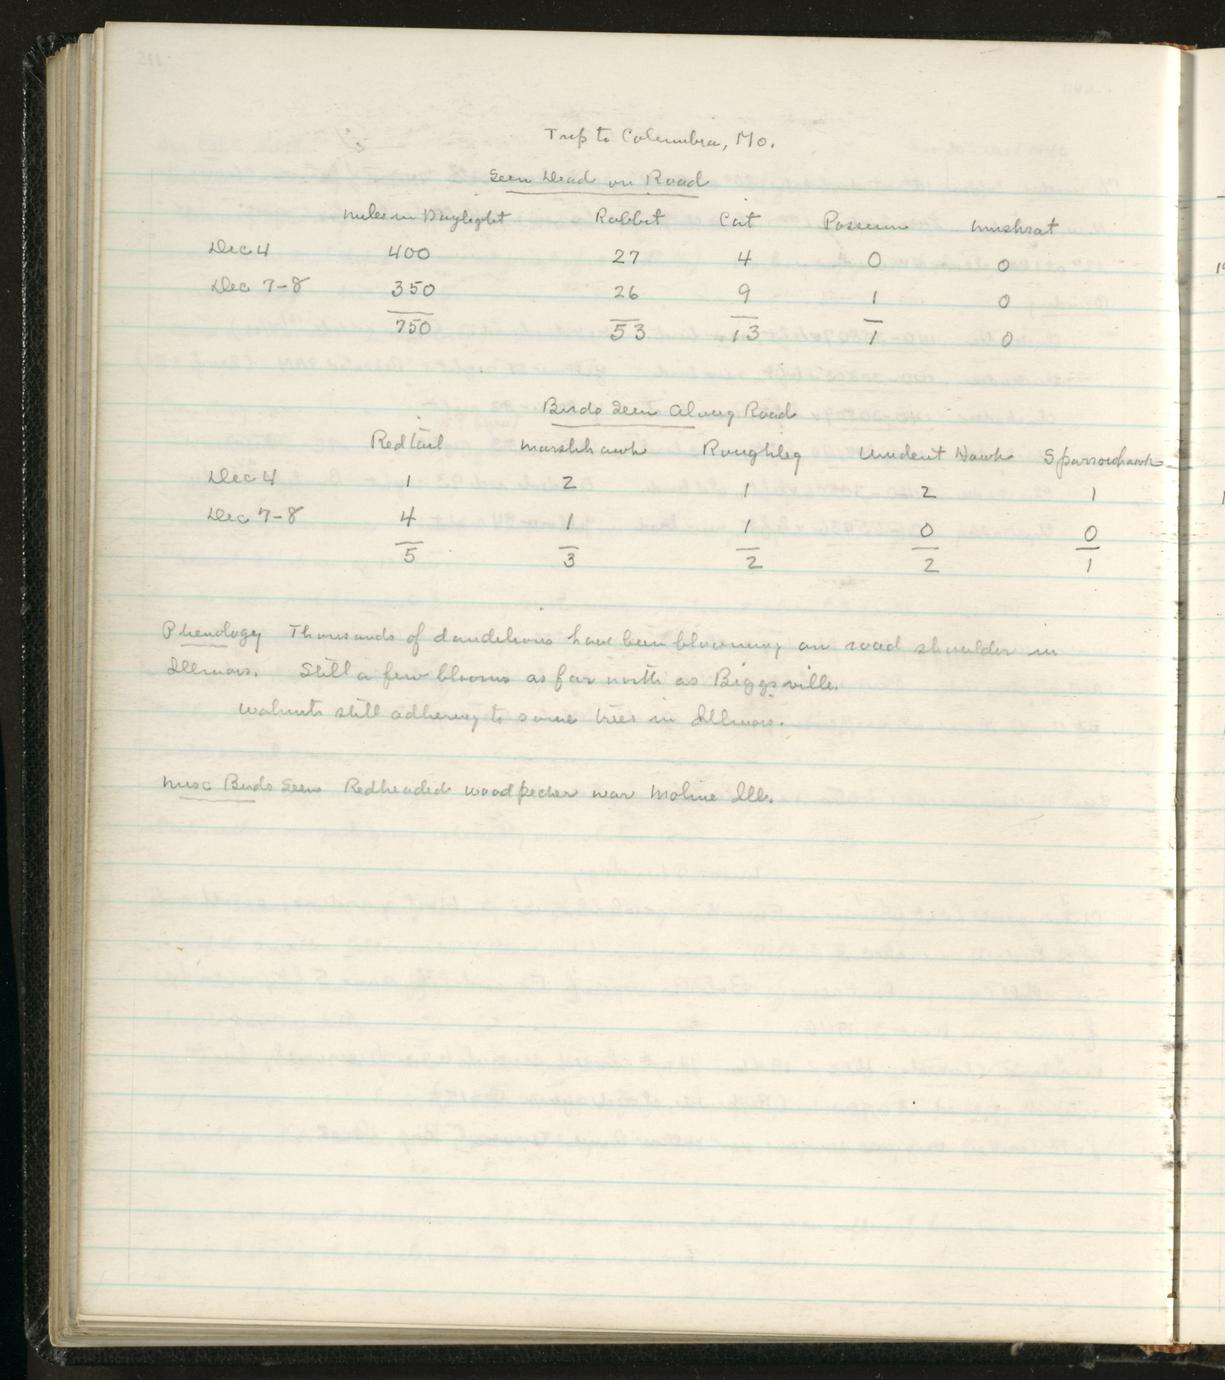 Trip to Columbia, Mo.
Seen Dead on Road
miles in Daylight Rabbit Cat Possum muskrat
Dec 4 400 27 4 0 0
Dec 7-8 350 26 9 1 0
750 53 13 1 0
Birds Seen Along Road
Redtail marshhawk Roughleg Unident Hawk Sparrowhawk
Dec 4 1 2 1 2 1
Dec 7-8 4 1 1 0 0
5 3 2 2 1
Phenology Thousands of dandelions have been blooming on road shoulder in
Illinois. Still a few blooms as far north as Biggsville.
Walnuts still adhering to some trees in Illinois.
Misc Birds Seen Redheaded woodpecker near Moline Ill.